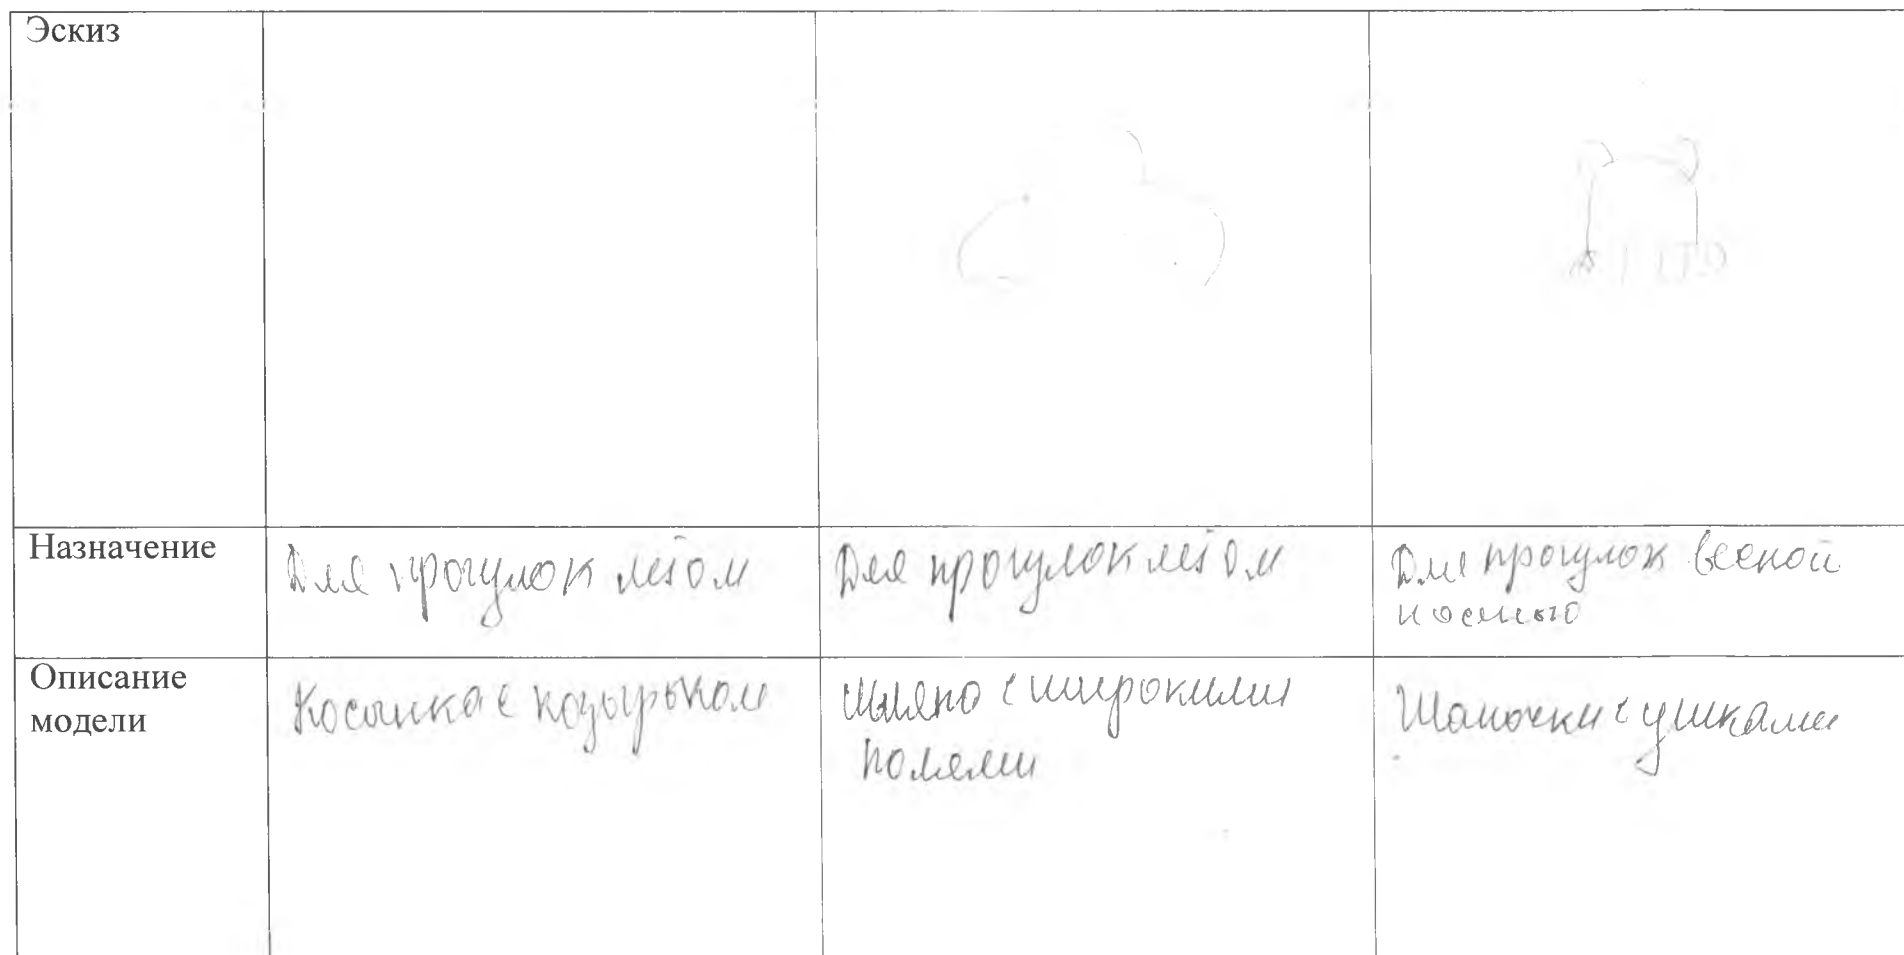 Эскиз
Назначение
Для прогулок летом
Для прогулок летом
Для прогулок весной
и осенью
Описание
модели
Косынка с козырьком
Шляпа с широкими
полями
Шапочки с ушками